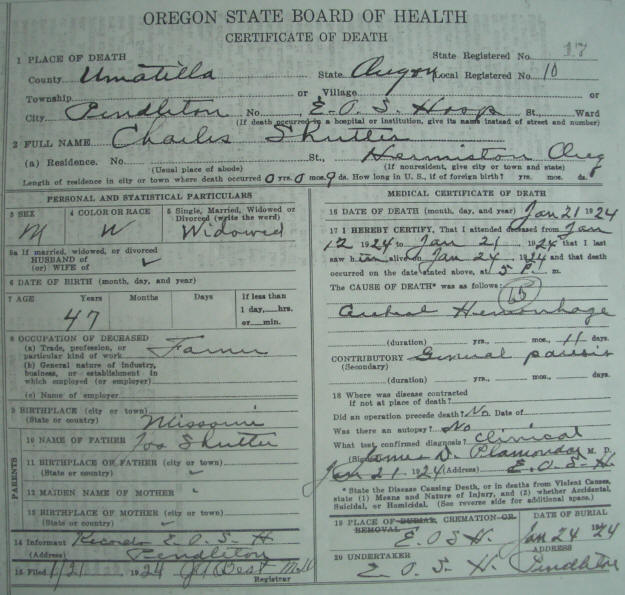 OREGON STATE BOARD OF HEALTH
CERTIFICATE OF DEATH
1 PLACE OF DEATH
State Registered No. 17
County Umatilla State Oregon Local Registered No. 10
Township or Village or
City Pendleton No. E. O. S. Hosp St., Ward
(If death occurred in a hospital or institution, give its name instead of street and number)
2 FULL NAME Charles Shutter
(a) Residence. No. St., Hermiston Oreg
(Usual place of abode) (If nonresident, give city or town and state)
Length of residence in city or town where death occurred 0 yrs. 0 mos. 9 ds. How long in U. S., if of foreign birth? yrs. mos. ds.
PERSONAL AND STATISTICAL PARTICULARS
3 SEX M
4 COLOR OR RACE W
5 Single, Married, Widowed or Divorced (write the word) Widowed
5a If married, widowed, or divorced
HUSBAND of
(or) WIFE of
6 DATE OF BIRTH (month, day, and year)
7 AGE Years Months Days If less than 1 day, hrs. or min.
47
8 OCCUPATION OF DECEASED
(a) Trade, profession, or particular kind of work Farmer
(b) General nature of industry, business, or establishment in which employed (or employer)
(c) Name of employer
9 BIRTHPLACE (city or town)
(State or country) Missouri
PARENTS
10 NAME OF FATHER Jos Shutter
11 BIRTHPLACE OF FATHER (city or town)
(State or country)
12 MAIDEN NAME OF MOTHER
13 BIRTHPLACE OF MOTHER (city or town)
(State or country)
14 Informant Records E. O. S. H
(Address) Pendleton
15 Filed 1/21 1924 Best
Registrar
MEDICAL CERTIFICATE OF DEATH
16 DATE OF DEATH (month, day, and year) Jan 21 1924
17 I HEREBY CERTIFY, That I attended deceased from Jan
12 1924 to Jan 21, 1924 that I last
saw him alive on Jan 24 1924 and that death
occurred on the date stated above, at 5 P. m.
The CAUSE OF DEATH* was as follows:
Hemorrhage
(duration) yrs., mos., 11 days.
CONTRIBUTORY General paresis
(Secondary)
(duration) yrs., mos., days.
18 Where was disease contracted
if not at place of death?
Did an operation precede death? No Date of
Was there an autopsy? No
What test confirmed diagnosis? Clinical
(Signed) James D. Plamondon M. D.
Jan 21, 1924 (Address) E. O. S. H.
* State the Disease Causing Death, or in deaths from Violent Causes, state (1) Means and Nature of Injury, and (2) whether Accidental, Suicidal, or Homicidal. (See reverse side for additional space.)
19 PLACE OF BURIAL, CREMATION OR REMOVAL
E. O. S H.
DATE OF BURIAL
Jan 24 1924
20 UNDERTAKER
E. O. S. H.
ADDRESS
Pendleton